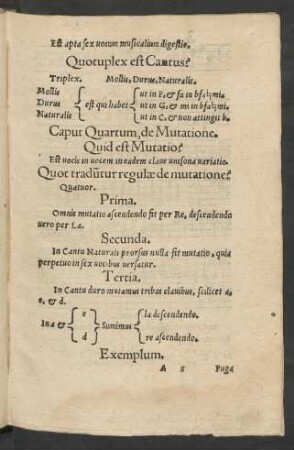 Est apta sex uocum musicalium digestio.
Quotuplex est Cantus?
Triplex. Mollis, Durus, Naturalis.
Mollis ut in F, & fa in bfa♮mi.
Durus est qui habet ut in G, & mi in bfa♮mi.
Naturalis ut in C, & non attingit b.
Caput Quartum, de Mutatione.
Quid est Mutatio?
Est uocis in uocem in eadem claue unisona uariatio.
Quot tradūtur regulæ de mutatione?
Quatuor.
Prima.
Omnis mutatio ascendendo fit per Re, descendendo
uero per La.
Secunda.
In Cantu Naturali prorsus nulla fit mutatio, quia
perpetuo in sex uocibus uersatur.
Tertia.
In Cantu duro mutamus tribus clauibus, scilicet a,
e, & d.
e la descendendo.
In a & Sumimus
d re ascendendo.
Exemplum.
A 5 Fuga